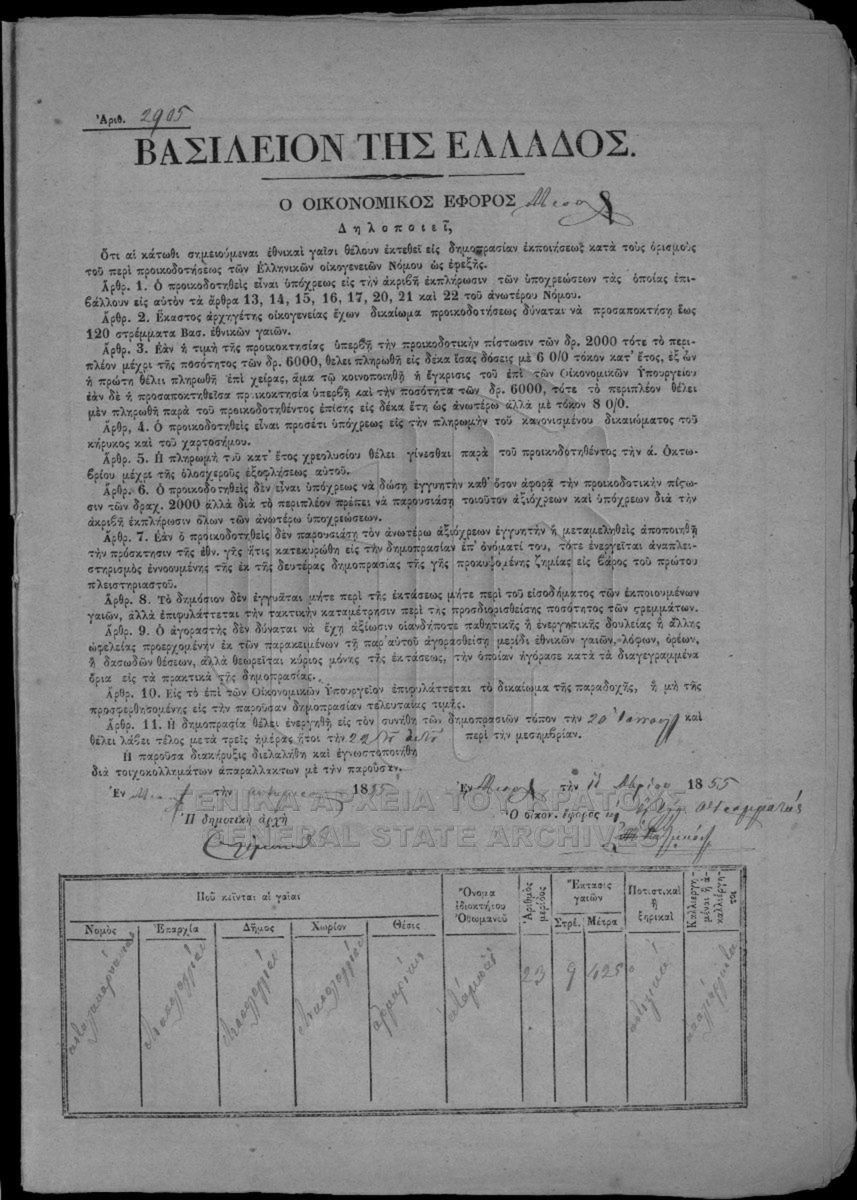 Ἀριθ. 2905
ΒΑΣΙΛΕΙΟΝ ΤΗΣ ΕΛΛΑΔΟΣ.
Ο ΟΙΚΟΝΟΜΙΚΟΣ ΕΦΟΡΟΣ
Δηλοποιεῖ,
Ὅτι αἱ κάτωθι σημειούμεναι ἐθνικαὶ γαῖαι θέλουν ἐκτεθεῖ εἰς δημοπρασίαν ἐκποιήσεως κατὰ τοὺς ὁρισμοὺς
τοῦ περὶ προικοδοτήσεως τῶν Ἑλληνικῶν οἰκογενειῶν Νόμου ὡς ἐφεξῆς.
Ἄρθρ. 1. Ὁ προικοδοτηθεὶς εἶναι ὑπόχρεως εἰς τὴν ἀκριβῆ ἐκπλήρωσιν τῶν ὑποχρεώσεων τὰς ὁποίας ἐπι-
βάλλουν εἰς αὐτὸν τὰ ἄρθρα 13, 14, 15, 16, 17, 20, 21 καὶ 22 τοῦ ἀνωτέρω Νόμου.
Ἄρθρ. 2. Ἕκαστος ἀρχηγέτης οἰκογενείας ἔχων δικαίωμα προικοδοτήσεως δύναται νὰ προσαποκτήσῃ ἕως
120 στρέμματα Βασ. ἐθνικῶν γαιῶν.
Ἄρθρ. 3. Ἐὰν ἡ τιμὴ τῆς προικοκτησίας ὑπερβῇ τὴν προικοδοτικὴν πίστωσιν τῶν δρ. 2000 τότε τὸ περι-
πλέον μέχρι τῆς ποσότητος τῶν δρ. 6000, θέλει πληρωθῆ εἰς δέκα ἴσας δόσεις μὲ 6 0/0 τόκον κατ' ἔτος, ἐξ ὧν
ἡ πρώτη θέλει πληρωθῆ ἐπὶ χεῖρας, ἅμα τῷ κοινοποιηθῇ ἡ ἔγκρισις τοῦ ἐπὶ τῶν Οἰκονομικῶν Ὑπουργείου
ἐὰν δὲ ἡ προσαποκτηθεῖσα προικοκτησία ὑπερβῇ καὶ τὴν ποσότητα τῶν δρ. 6000, τότε τὸ περιπλέον θέλει
μὲν πληρωθῆ παρὰ τοῦ προικοδοτηθέντος ἐπίσης εἰς δέκα ἔτη ὡς ἀνωτέρω ἀλλὰ μὲ τόκον 8 0/0.
Ἄρθρ, 4. Ὁ προικοδοτηθεὶς εἶναι προσέτι ὑπόχρεως εἰς τὴν πληρωμὴν τοῦ κανονισμένου δικαιώματος τοῦ
κήρυκος καὶ τοῦ χαρτοσήμου.
Ἄρθρ. 5. Ἡ πληρωμὴ τοῦ κατ' ἔτος χρεολυσίου θέλει γίνεσθαι παρὰ τοῦ προικοδοτηθέντος τὴν ά. Ὀκτω-
βρίου μέχρι τῆς ὁλοσχεροῦς ἐξοφλήσεως αὐτοῦ.
Ἄρθρ. 6. Ὁ προικοδοτηθεὶς δὲν εἶναι ὑπόχρεως νὰ δώσῃ ἐγγυητὴν καθ' ὅσον ἀφορᾷ τὴν προικοδοτικὴν πίστω-
σιν τῶν δραχ. 2000 ἀλλὰ διὰ τὸ περιπλέον πρέπει νὰ παρουσιάσῃ τοιοῦτον ἀξιόχρεων καὶ ὑπόχρεων διὰ τὴν
ἀκριβῆ ἐκπλήρωσιν ὅλων τῶν ἀνωτέρω ὑποχρεώσεων.
Ἄρθρ. 7. Ἐὰν ὁ προικοδοτηθεὶς δὲν παρουσιάσῃ τὸν ἀνωτέρω ἀξιόχρεων ἐγγυητὴν ἢ μεταμεληθεὶς ἀποποιηθῇ
τὴν πρόσκτησιν τῆς ἐθν. γῆς ἥτις κατεκυρώθη εἰς τὴν δημοπρασίαν ἐπ' ὀνόματί του, τότε ἐνεργεῖται ἀναπλει-
στηρισμὸς ἐννοουμένης τῆς ἐκ τῆς δευτέρας δημοπρασίας τῆς γῆς προκυψομένης ζημίας εἰς βάρος τοῦ πρώτου
πλειστηριαστοῦ.
Ἄρθρ. 8. Τὸ δημόσιον δὲν ἐγγυᾶται μήτε περὶ τῆς ἐκτάσεως μήτε περὶ τοῦ εἰσοδήματος τῶν ἐκποιουμένων
γαιῶν, ἀλλὰ ἐπιφυλάττεται τὴν τακτικὴν καταμέτρησιν περὶ τῆς προσδιορισθείσης ποσότητος τῶν στρεμμάτων.
Ἄρθρ. 9. Ὁ ἀγοραστὴς δὲν δύναται νὰ ἔχῃ ἀξίωσιν οἱανδήποτε παθητικῆς ἢ ἐνεργητικῆς δουλείας ἢ ἄλλης
ὠφελείας προερχομένην ἐκ τῶν παρακειμένων τῇ παρ' αὐτοῦ ἀγορασθείσῃ μερίδι ἐθνικῶν γαιῶν, λόφων, ὀρέων,
ἢ δασωδῶν θέσεων, ἀλλὰ θεωρεῖται κύριος μόνης τῆς ἐκτάσεως, τὴν ὁποίαν ἠγόρασε κατὰ τὰ διαγεγραμμένα
ὅρια εἰς τὰ πρακτικὰ τῆς δημοπρασίας.
Ἄρθρ. 10. Εἰς τὸ ἐπὶ τῶν Οἰκονομικῶν Ὑπουργεῖον ἐπιφυλάττεται τὸ δικαίωμα τῆς παραδοχῆς, ἢ μὴ τῆς
προσφερθησομένης εἰς τὴν παροῦσαν δημοπρασίαν τελευταίας τιμῆς.
Ἄρθρ. 11. Ἡ δημοπρασία θέλει ἐνεργηθῆ εἰς τὸν συνήθη τῶν δημοπρασιῶν τόπον τὴν 20 καὶ
θέλει λάβει τέλος μετὰ τρεῖς ἡμέρας ἤτοι τὴν 22 περὶ τὴν μεσημβρίαν.
Ἡ παροῦσα διακήρυξις διελαλήθη καὶ ἐγνωστοποιήθη
διὰ τοιχοκολλημάτων ἀπαραλλάκτων μὲ τὴν παροῦσαν.
Ἐν τὴν 1855 Ἐν τὴν 11 1855
ΓΕΝΙΚΑ ΑΡΧΕΙΑ ΤΟΥ ΚΡΑΤΟΥΣ
Ἡ δημοτικὴ ἀρχὴ Ὁ οἰκον. ἔφορος
GENERAL STATE ARCHIVES
Ποῦ κεῖνται αἱ γαῖαι
Νομὸς Ἐπαρχία Δῆμος Χωρίον Θέσις
Ὄνομα ἰδιοκτήτου Ὀθωμανοῦ
Ἀριθμὸς μερίδος
Ἔκτασις γαιῶν
Στρέ. Μέτρα
Ποτιστικαὶ ἢ ξηρικαὶ
Καλλιεργημέναι ἢ ἀκαλλιέργητοι
23 9 425